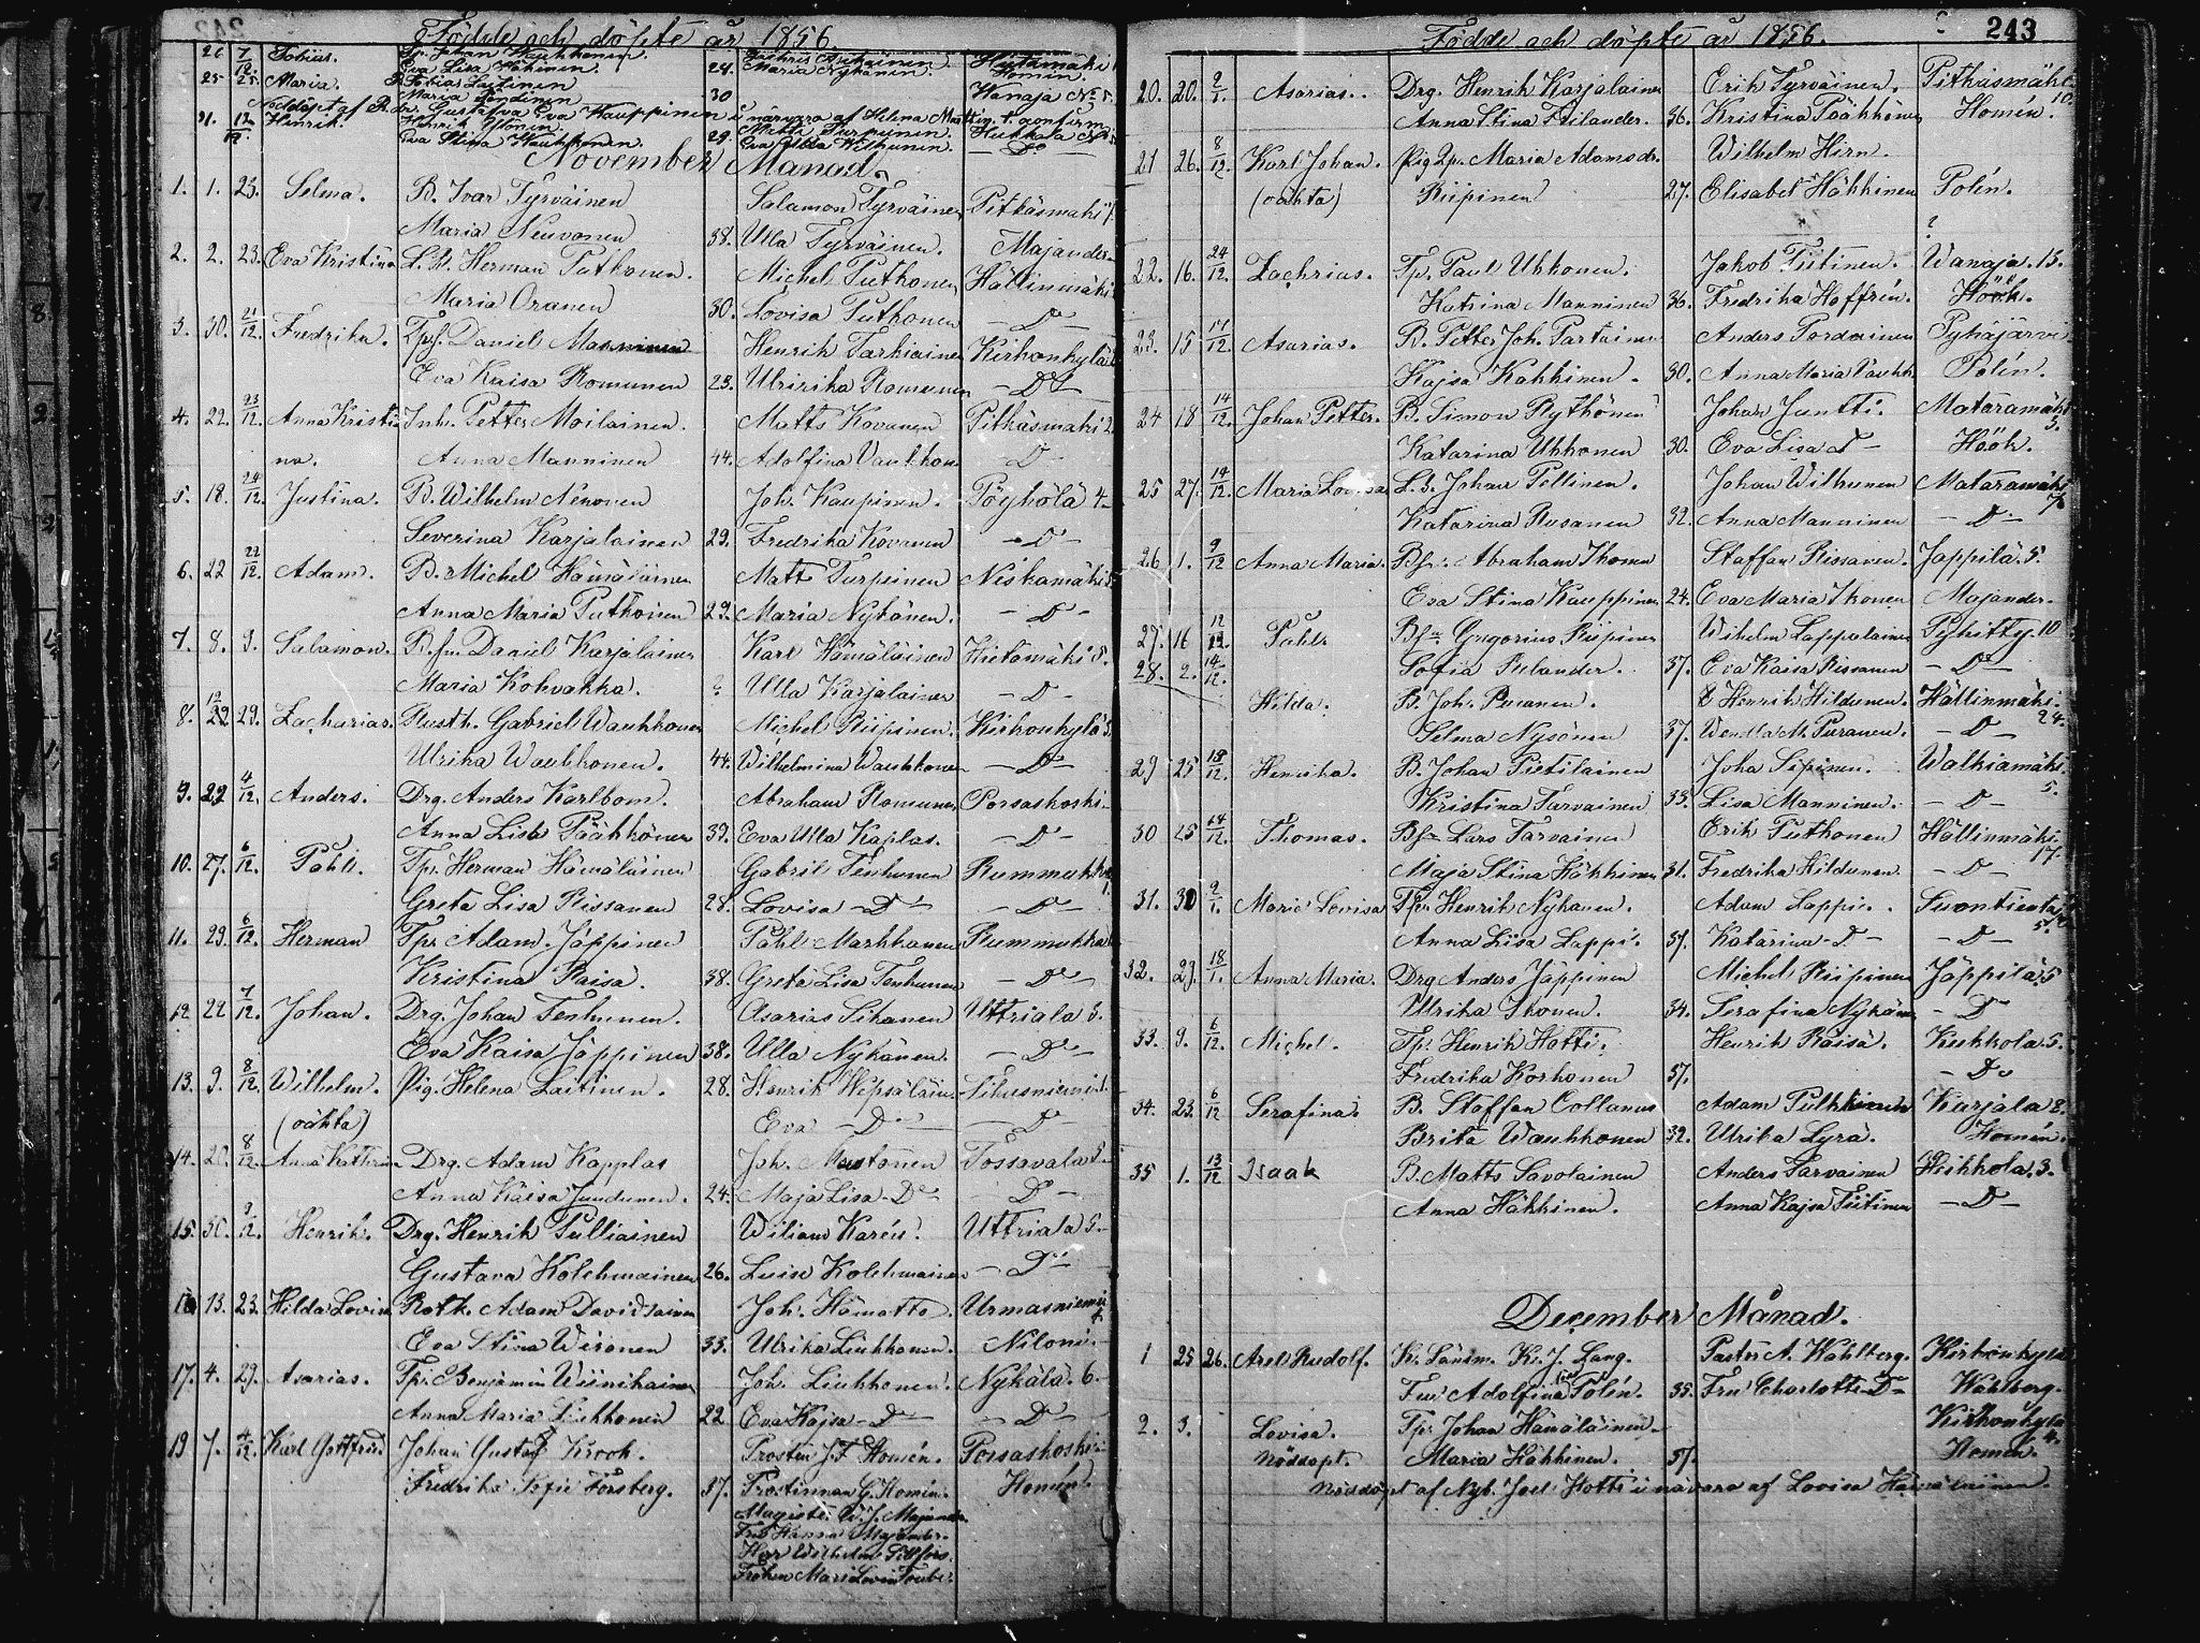 Födde och döpte år 1856.
26 7/12. Tobias. Eva Lisa Häkinen. 24. Maria Nykänen. Hietamäki Homén.
25 25. Maria. B. Tobias Laitinen 30 Wanaja No 5.
Nöddöpt af Gustafva Eva Kauppinen i närvaro af Helena
31. Henrik. Eva Stina 29. Eva Ulla Wilhunen. Do
November Månad.
1. 1. 23. Selma. B. Ivar Tyrväinen Salamon Tyrväinen Pitkäsmäki
Maria Neuvonen 38. Ulla Tyrväinen. Majander
2. 2. 23. Eva Kristina L. B. Herman Putkonen. Michel Puthonen Hällinmäki
Maria Oranen 30. Lovisa Puthonen Do
3. 30. 21/12. Fredrika. Tpf. Daniel Manninen Henrik Tarkiainen Kirkonkylä
Eva Kaisa Romunen 23. Ulririka Romunen Do
4. 22. 23/12. Anna Kristi- Inh. Petter Moilainen. Matts Kovanen Pitkäsmäki 2.
na. Anna Manninen 44. Adolfina Vauhkon D
5. 18. 24/12. Justina. B. Wilhelm Nenonen Joh. Kaupinen. Pöyhölä 4
Severina Karjalainen 29. Fredrika Kovanen D
6. 22 22/12. Adam. B. Michel Hämäläinen Matt Turpeinen Niskamäki 5.
Anna Maria Puthonen 29. Maria Nykänen. D
7. 8. 9. Salamon. B.fm. Daniel Karjalainen Karl Hämäläinen Hietamäki 5.
Maria Kohvakka. ? Ulla Karjalainen D
8. 22 29. Zacharias. Rusth. Gabriel Wauhkonen Michel Riipinen. Kirkonkylä 3.
Ulrika Wauhkonen. 44. Wilhelmina Wauhkonen D
9. 22 4/12. Anders. Drg. Anders Karlbom. Abraham Romunen Porsaskoski
Anna Lisa Pääkkönen 39. Eva Ulla Kaplas. D
10. 27. 6/12. Påhl. Tpr. Herman Hämäläinen Gabriel Tenhunen Rummukka
Greta Lisa Rissanen 28. Lovisa D D
11. 29. 6/12. Herman Tpr Adam Jäppinen Påhl Markkanen Rummukka
Kristina Raisa. 38. Greta Lisa Tenhunen D
12. 22 7/12. Johan. Drg. Johan Tenhunen. Asarias Sikanen Uttriala 3.
Eva Kaisa Jäppinen 38. Ulla Nykänen. D
13. 9. 8/12. Wilhelm. Pig. Helena Laitinen. 28. Henrik Hepsäläin.
(oäkta) Eva D D
14. 20. 8/12. Anna Kattrina Drg. Adam Kapplas Joh. Mustonen Tossavala
Anna Kaisa Juudunen. 24. Maja Lisa D D
15. 30. 9/12. Henrik. Drg. Henrik Pulliainen Wiliam Karén. Uttriala 5
Gustava Kolehmainen 26. Luise Kolehmainen D
13. 23. Hilda Lovisa Adam Davidsainen Joh. Hämatto. Urmasniemi
Eva Stina Wesonen 33. Ulrika Liukkonen. Niloni
17. 4. 29. Asarias. Tpr. Benjamin Wiinikainen Joh. Liukkonen. Nykälä. 6.
Anna Maria Liukkonen 22 Eva Kajsa D D
19 7. 4/12. Karl Gottfrid Johan Gustaf Krook. Prosten J. F. Homén. Porsaskoski
Fredrika Sofie Forsberg. 37. Prostinnan G. Homén. Homén.
Magister W. J. Majander
Fru Hanna Majander
Herr Wilhelm
Fröken Mari Lovisa
Födde och döpte år 1856. 243
20. 20. 2/1. Asarias. Drg. Henrik Karjalainen Erik Tyrväinen. Pitkäsmäki 10.
Anna Stina Filander. 36. Kristina Pääkkönen Homén.
21 26. 8/12. Karl Johan. Pig Maria Adamsdr. Wilhelm Hirn.
(oäkta) Riipinen 27. Elisabet Häkkinen Polén.
?
22. 16. 24/12. Zachrias. Tp. Paul Uhkonen. Jakob Tiitinen. Wanaja. 15.
Katrina Manninen 36. Fredrika Hoffrén. Höök.
23. 15 14/12. Asarias. B. Petter Joh. Partainen Anders Pordainen Pyhäjärvi
Kajsa Kahkinen. 30. Anna Maria Vauhk. Polén.
24 18 14/12. Johan Petter. B. Simon Rythönen Johan Juntti. Mataramäki 5.
Katarina Uhkonen 30. Eva Lisa D Höök.
25 27. 14/12. Maria Lovisa L. B. Johan Pellinen. Johan Wilhunen Mataramäki 7.
Katarina Rosanen 32. Anna Manninen D
26 1. 9/12 Anna Maria. Bfr. Abraham Ikonen Staffan Rissanen. Jäppilä. 5.
Eva Stina Kauppinen 24. Eva Maria Ikonen Majander
27. 16 12/12. Påhl Bfr Gregorius Riipinen Wilhelm Lappalainen Pyhitty. 10
28. 2. 14/12. Sofia Pulander. 37. Eva Kaisa Rissanen D
Hilda. B. Joh. Puranen. Henrik Hildunen. Hällinmäki. 24.
Selma Nysönen 37. Wendla M. Puranen. D
29 25 18/12. Henrika. B. Johan Pietilainen Joha Sipinen. Walkiamäki. 5.
Kristina Tarvainen 33. Lisa Manninen. D
30 25 14/12. Thomas. Bfr Lars Tarvainen Erik Puthonen Hällinmäki 17.
Maja Stina Häkkinen 31. Fredrika Hildunen. D
31. 30 2/1. Maria Lovisa Tpr. Henrik Nykänen. Adam Lappi. Suontientaipa 5.
Anna Liisa Lappi. 37. Katarina D D
32. 29. 18/1. Anna Maria. Drg Anders Jäppinen Michel Riipinen Jäppilä. 5
Ulrika Ikonen. 34. Serafina Nykänen D
33. 9. 6/12. Michel. Tp. Henrik Hotti. Henrik Raisä. Kukkola. 5.
Fredrika Korhonen 37. Do
34. 23. 6/12 Serafina. B. Staffan Collanus Adam Pulkkinen Karjala 8.
Brita Wauhkonen 32. Ulrika Lyra. Homén.
35 1. 13/12 Isaak B. Matts Savolainen Anders Tarvainen Heikkola. 3.
Anna Häkkinen. Anna Kajsa Tiitinen D
December Månad.
1 25 26. Axel Rudolf. Kr. Länsm. K. J. Lang. Pastor A. Wahlberg. Kirkonkylä
Fru Adolfina Polén. 35. Fru Charlotte D Wahlberg.
2. 3. Lovisa. Tpr. Johan Hämäläinen. Kirkonkylä 4.
Nöddöpt. Maria Häkkinen. 37. Homén.
Nöddöpt af Nyb. Joel Hotti i närvaro af Lovisa Hämäläinen.